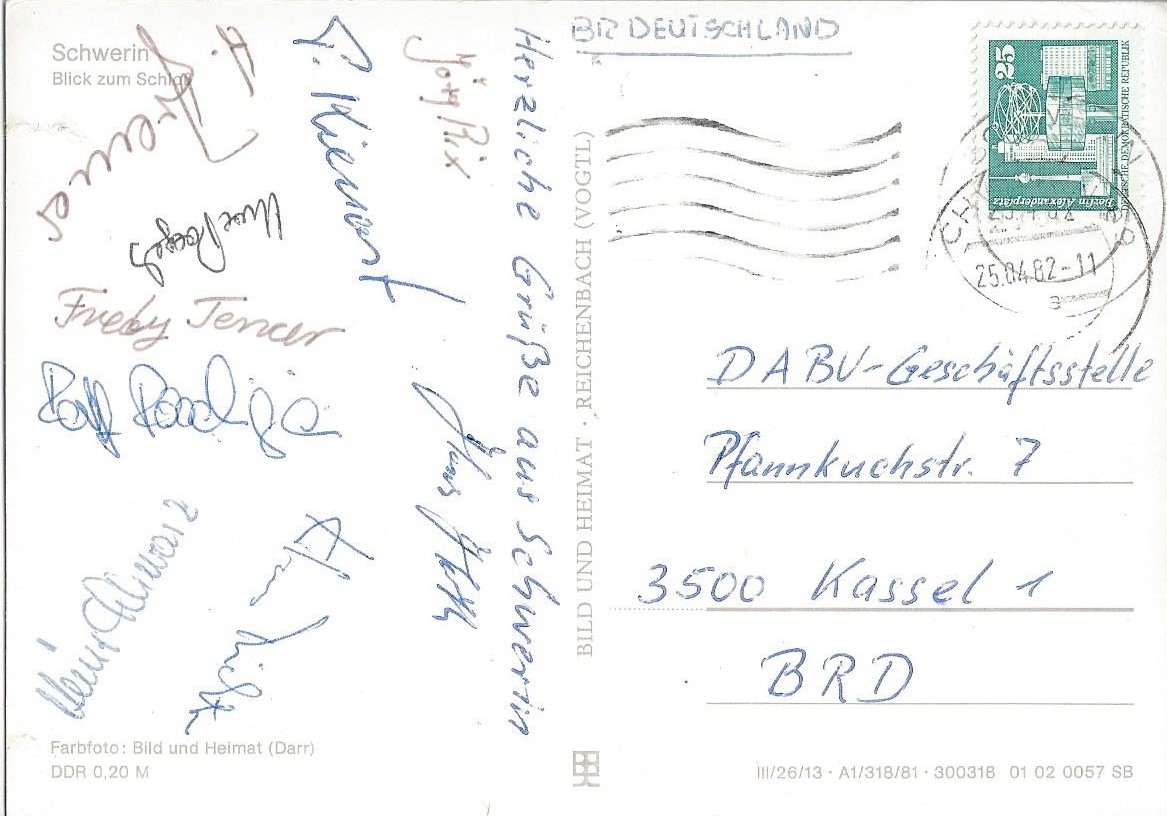 Schwerin
Blick zum Schloß
BR DEUTSCHLAND
25
DEUTSCHE DEMOKRATISCHE REPUBLIK
Berlin, Alexanderplatz
25.04.82-11
a
Herzliche Grüße aus Schwerin
Jörg Rix
Fredy Tencer
Heinz Schwarz
BILD UND HEIMAT · REICHENBACH (VOGTL)
DABV-Geschäftsstelle
Pfannkuchstr. 7
3500 Kassel 1
BRD
Farbfoto: Bild und Heimat (Darr)
DDR 0,20 M
III/26/13 · A1/318/81 · 300318 01 02 0057 SB